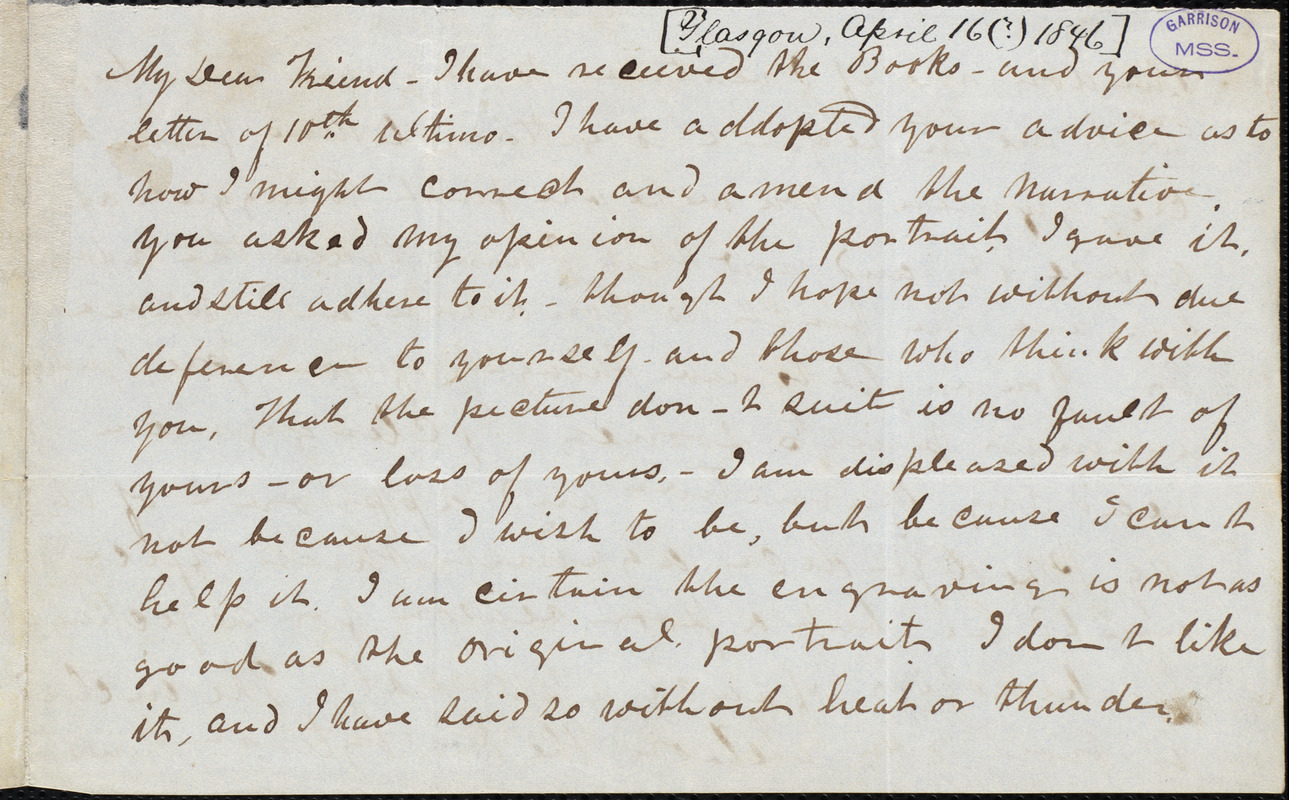 [Glasgow, April 16(?) 1846]
GARRISON
MSS.
My Dear Friend - I have received the Books - and your
letter of 10th ultimo. I have addopted your advice as to
how I might correct and amend the narrative.
you asked my opinion of the portrait. I gave it,
and still adhere to it, - though I hope not without due
deference to yourself and those who think with
you, That the picture don-t suit is no fault of
yours - or loss of yours. - I am displeased with it
not because I wish to be, but because I cant
help it. I am cirtain the engraving is not as
good as the original portrait. I dont like
it, and I have said so without heat or thunder.